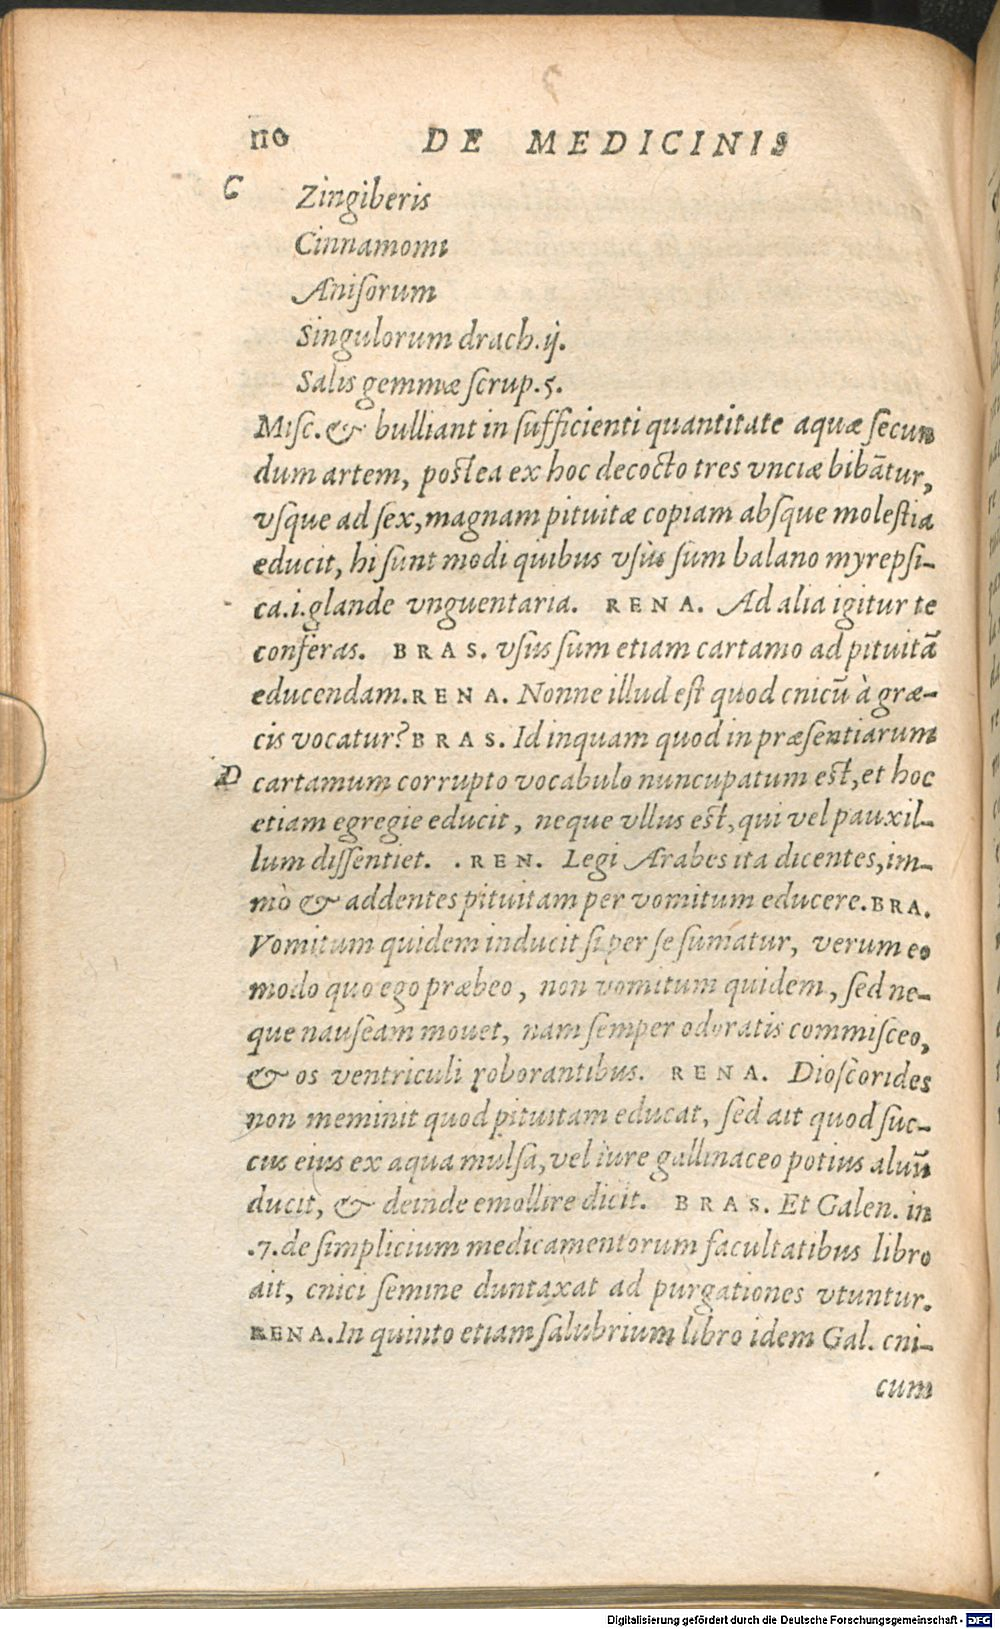 110 DE MEDICINIS
C Zingiberis
Cinnamomi
Anisorum
Singulorum drach.ij.
Salis gemmæ scrup.5.
Misc.& bulliant in sufficienti quantitate aquæ secun
dum artem, postea ex hoc decocto tres vnciæ bibātur,
vsque ad sex, magnam pituitæ copiam absque molestia
educit, hi sunt modi quibus vsus sum balano myrepsi-
ca.i.glande vnguentaria. RENA. Ad alia igitur te
conferas. BRAS. vsus sum etiam cartamo ad pituitā
educendam. RENA. Nonne illud est quod cnicū à græ-
cis vocatur? BRAS. Id inquam quod in præsentiarum
D cartamum corrupto vocabulo nuncupatum est, et hoc
etiam egregie educit, neque vllus est, qui vel pauxil-
lum dissentiet. .REN. Legi Arabes ita dicentes, im-
mò & addentes pituitam per vomitum educere. BRA.
Vomitum quidem inducit si per se sumatur, verum eo
modo quo ego præbeo, non vomitum quidem, sed ne-
que nauseam mouet, nam semper odoratis commisceo,
& os ventriculi roborantibus. RENA. Dioscorides
non meminit quod pituitam educat, sed ait quod suc-
cus eius ex aqua mulsa, vel iure gallinaceo potius aluū
ducit, & deinde emollire dicit. BRAS. Et Galen. in
.7.de simplicium medicamentorum facultatibus libro
ait, cnici semine duntaxat ad purgationes vtuntur.
RENA. In quinto etiam salubrium libro idem Gal. cni-
cum
Digitalisierung gefördert durch die Deutsche Forschungsgemeinschaft - DFG